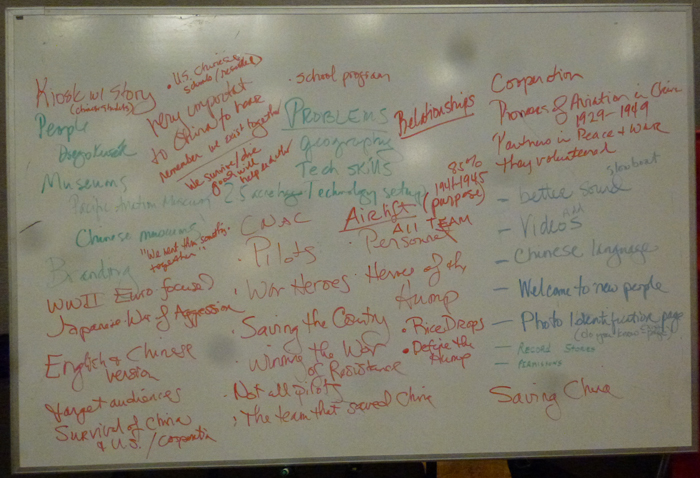 Kiosk w/ Story
(chinese students)
People
Museums
Pacific Aviation Museum
Chinese museums
Branding
WWII Euro focused
Japanese War of Aggression
English & Chinese
Version
Target audiences
Survival of China
& U.S. / Cooperation
• U.S. Chinese
schools/
very important
to China to have
remember we exist together
We survive/
good will
help each other
"We went thru something
together"
• school program
PROBLEMS
geography
Tech skills
Technology setup
CNAC
• Pilots
• War Heroes
• Saving the Country
• Winning the War
of Resistance
• Not all pilots
• The team that saved China
Relationships
85%
1941-1945
Airlift (purpose)
ALL TEAM
• Personnel
• Heroes of the
Hump
• Rice Drops
• Define the
Hump
Cooperation
Pioneers of Aviation in China
1929-1949
Partners in Peace & War
they volunteered
slowboat
- better sound
- Videos add
- Chinese language
- Welcome to new people
- Photo Identification page
(do you know page)
- RECORD STORIES
Saving China